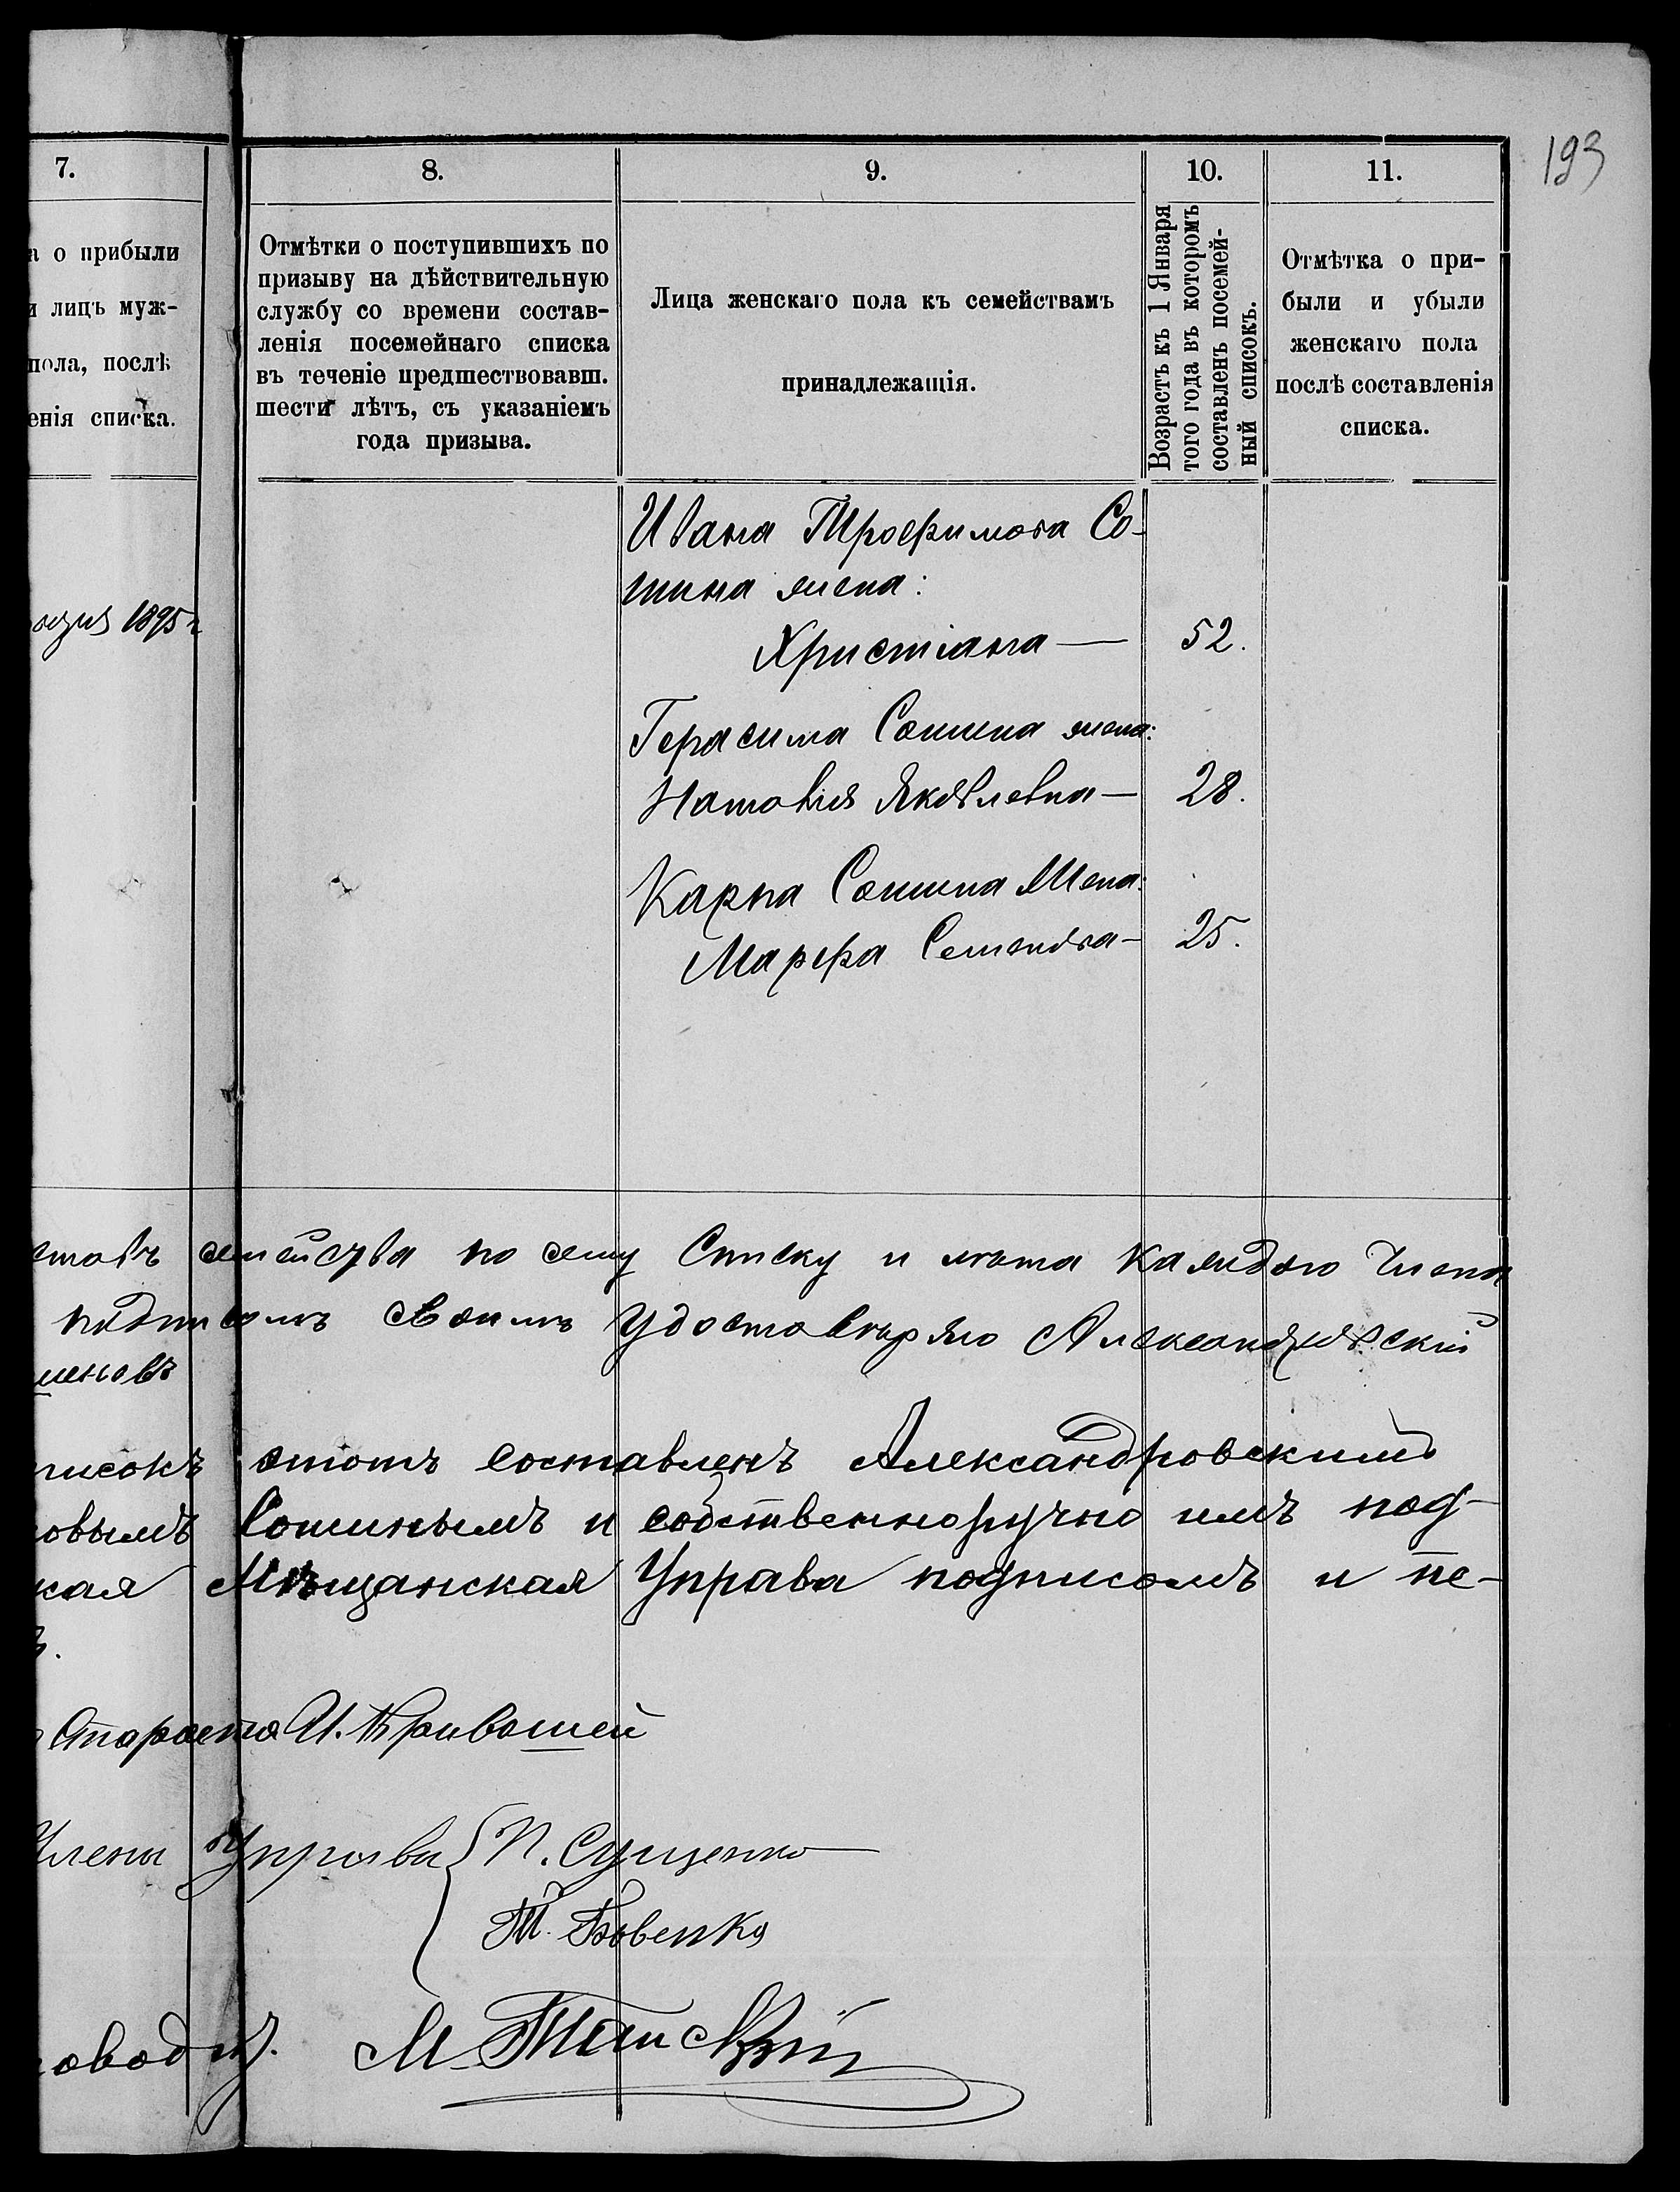 193
7.
8.
9.
10.
11.
а о прибыли
и лицъ муж-
пола, послѣ
енія списка.
Отмѣтки о поступившихъ по
призыву на дѣйствительную
службу со времени состав-
ленія посемейнаго списка
въ теченіе предшествовавш.
шести лѣтъ, съ указаніемъ
года призыва.
Лица женскаго пола къ семействамъ
принадлежащія.
Возрастъ къ 1 Января
того года въ которомъ
составленъ посемей-
ный списокъ.
Отмѣтка о при-
были и убыли
женскаго пола
послѣ составленія
списка.
1895 г
Ивана Трофимова Со-
шина жена:
Христіана — 52.
Герасима Сошина жена:
Натовія Яковлевна — 28.
Карпа Сошина Жена:
Марфа Семенова — 25.
ставъ семейства по сему Списку и лѣта каждаго Члена
подписомъ своимъ Удостовѣряю Александровскій
меновъ
писокъ этотъ составленъ Александровскимъ
овымъ Сошинымъ и собственноручно имъ под-
кая Мѣщанская Управа подписомъ и пе-
ъ.
Староста И. Кривошей
Члены Управы П. Сущенко
Т. Бовенко
оводъ. М.